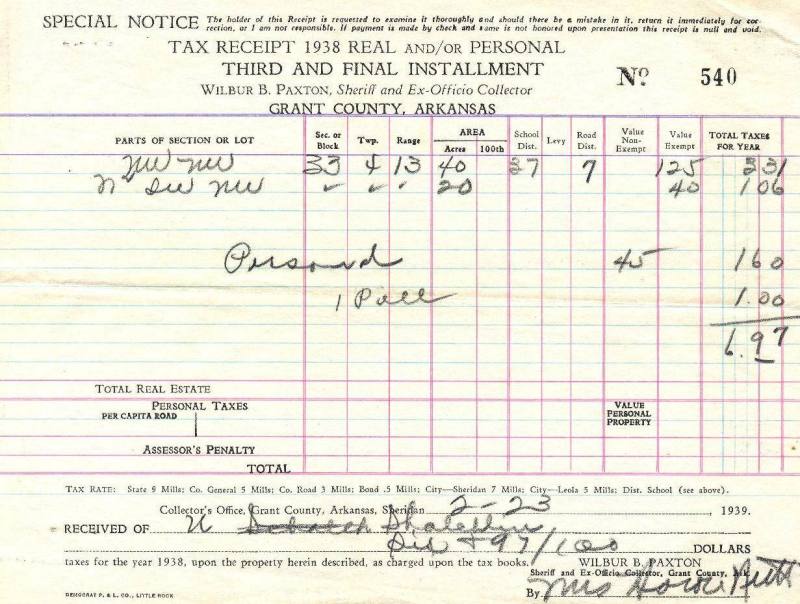 SPECIAL NOTICE The holder of this Receipt is requested to examine it thoroughly and should there be a mistake in it, return it immediately for cor-
rection, or I am not responsible. If payment is made by check and same is not honored upon presentation this receipt is null and void.
TAX RECEIPT 1938 REAL AND/OR PERSONAL
THIRD AND FINAL INSTALLMENT
No 540
WILBUR B. PAXTON, Sheriff and Ex-Officio Collector
GRANT COUNTY, ARKANSAS
PARTS OF SECTION OR LOT Sec. or Block Twp. Range AREA Acres 100th School Dist. Levy Road Dist. Value Non-Exempt Value Exempt TOTAL TAXES FOR YEAR
NW NW 33 4 13 40 27 7 125 2 31
N SW NW " " " 20 40 1 06
Personal 45 1 60
1 Poll 1.00
6.97
TOTAL REAL ESTATE
PERSONAL TAXES
PER CAPITA ROAD
VALUE PERSONAL PROPERTY
ASSESSOR'S PENALTY
TOTAL
TAX RATE: State 9 Mills; Co. General 5 Mills; Co. Road 3 Mills; Bond .5 Mills; City—Sheridan 7 Mills; City—Leola 5 Mills; Dist. School (see above).
Collector's Office, Grant County, Arkansas, Sheridan 2-23, 1939.
RECEIVED OF
Six + 97/100 DOLLARS
taxes for the year 1938, upon the property herein described, as charged upon the tax books. WILBUR B. PAXTON
Sheriff and Ex-Officio Collector, Grant County, Ark.
By Mrs
DEMOCRAT P. & L. CO., LITTLE ROCK